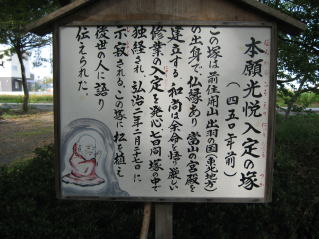 本願光悦入定の塚
(四五〇年前)
この塚は前住開山出羽の国(東北地方)
の出身で、仏縁あり當山の宮殿を
建立する。和尚は余命を悟り厳しい
修業の入定を発心、七日間塚の中で
独経され、弘治二年二月二十七日に
示寂される。この塚に松を植え
後世の人に語り
伝えられた。